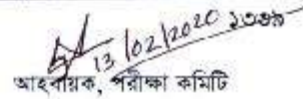 13/02/2020
আহবায়ক, পরীক্ষা কমিটি